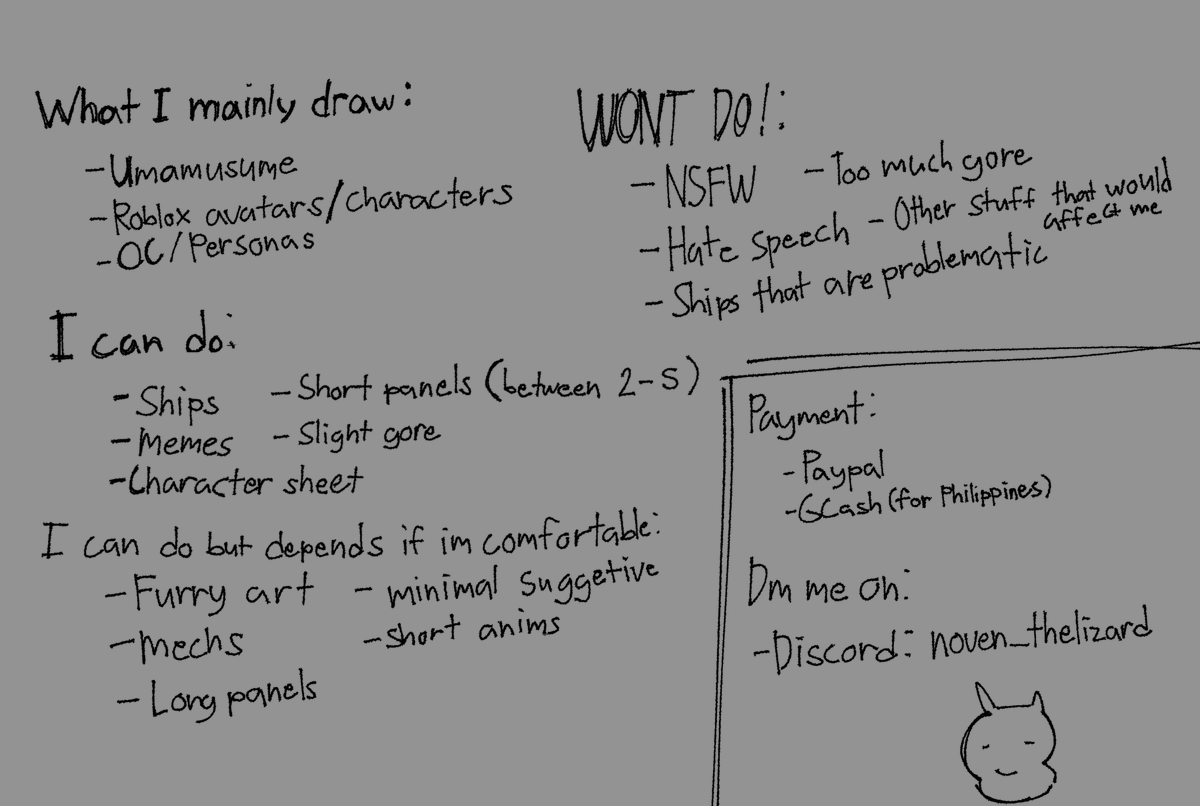 What I mainly draw:
-Umamusume
-Roblox avatars/characters
-OC/Personas
I can do:
-Ships
-Short panels (between 2-5)
-Memes
-Slight gore
-Character sheet
I can do but depends if im comfortable:
-Furry art
-minimal suggetive
-mechs
-short anims
-Long panels
WONT DO!:
-NSFW
-Too much gore
-Hate speech
-Other stuff that would
affect me
-Ships that are problematic
Payment:
-Paypal
-GCash (for Philippines)
Dm me on:
-Discord: noven_thelizard